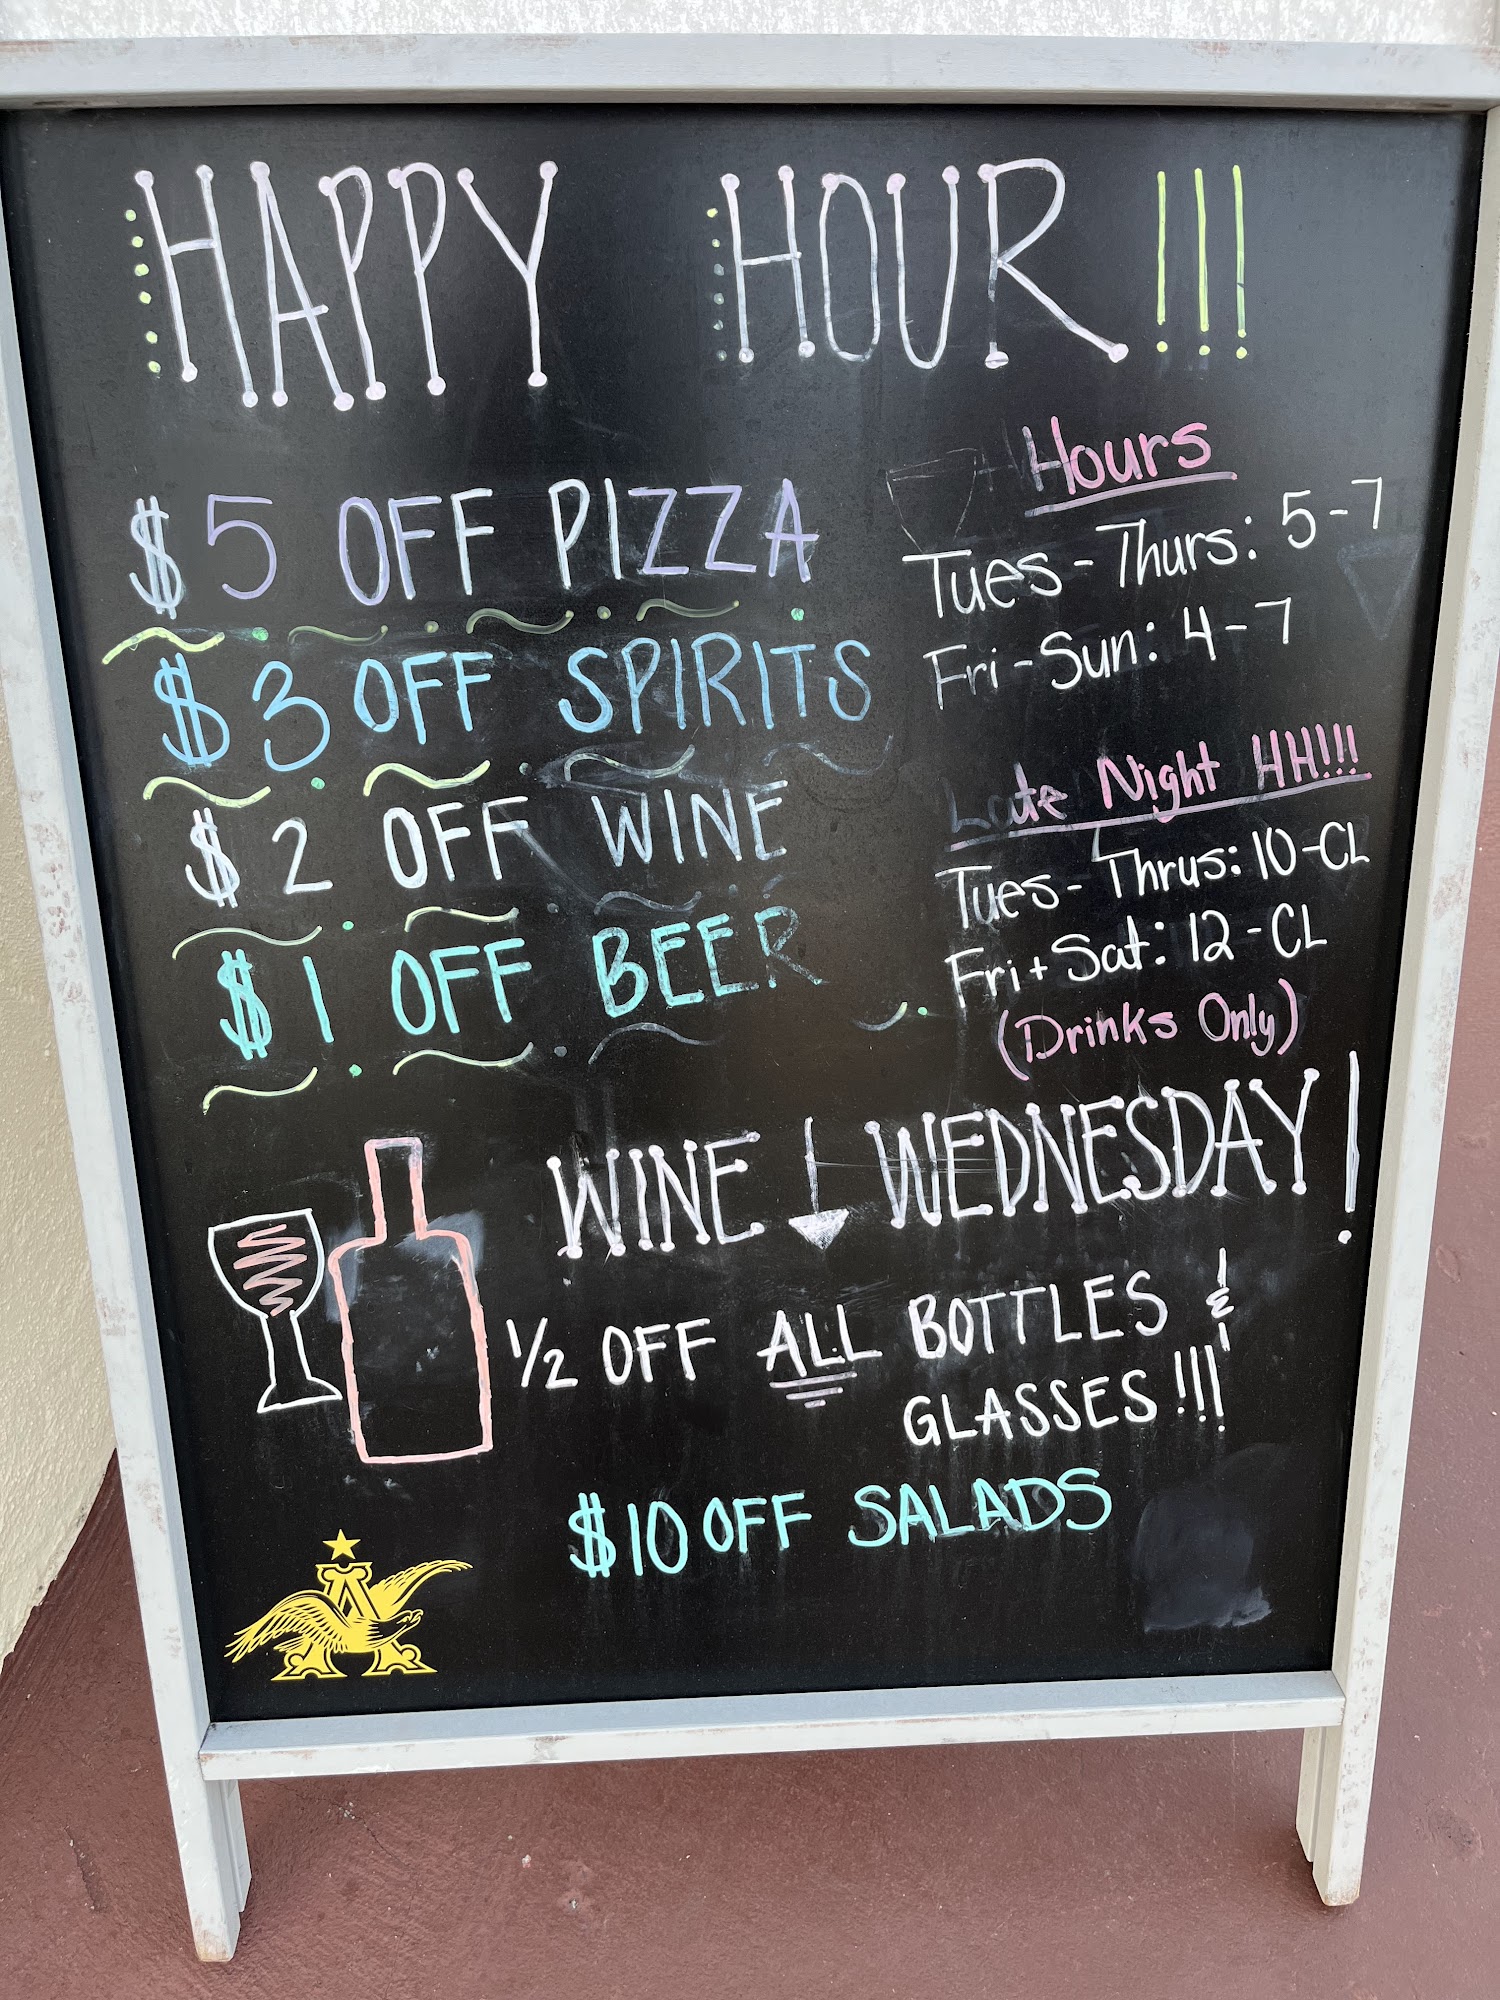 HAPPY HOUR!!!
$5 OFF PIZZA
$3 OFF SPIRITS
$2 OFF WINE
$1 OFF BEER
Hours
Tues-Thurs: 5-7
Fri-Sun: 4-7
Late Night HH!!!
Tues-Thrus: 10-CL
Fri+Sat: 12-CL
(Drinks Only)
WINE WEDNESDAY!
1/2 OFF ALL BOTTLES &
GLASSES!!!
$10 OFF SALADS
A